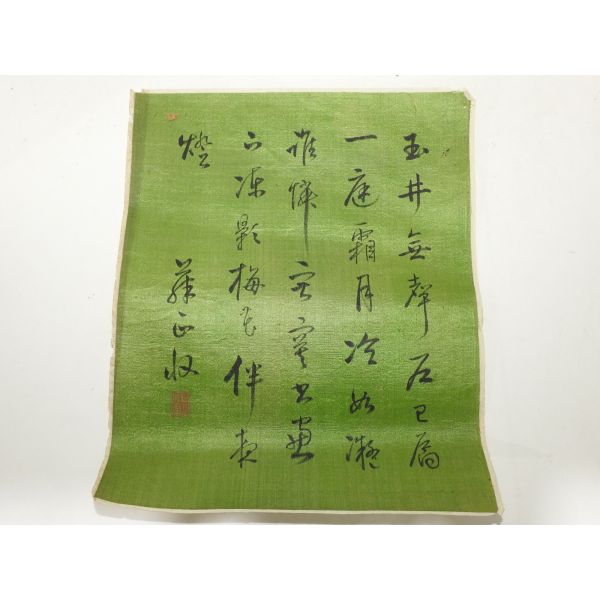 玉井無聲石已
一庭霜月冷如凝
唯憐寂寞書窓
下凍影梅花伴夜
燈
藤正收